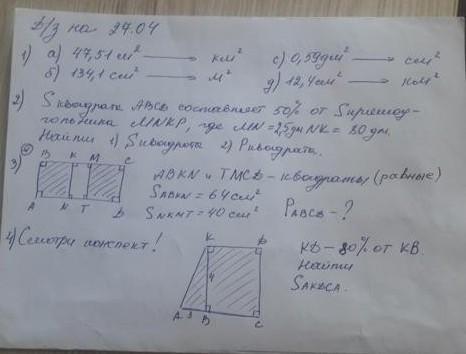 Д/з на 27.04
1) а) 47,51 м² → км² с) 0,59дм² → см²
б) 134,1 см² → м² д) 12,4см² → км²
2) S квадрата ABCD составляет 50% от S прямоу-
гольника MNKP, где MN=2,5дм NK=80дм.
Найти 1) S квадрата 2) P квадрата.
3) B K M C
A N T D
ABKN и TMCD - квадраты (равные)
S ABKN = 64 см²
S NKMT = 40 см²
P ABCD - ?
4) Смотри конспект!
K D
4
A 3 B C
KD - 80% от KB.
Найти
S AKDCA.